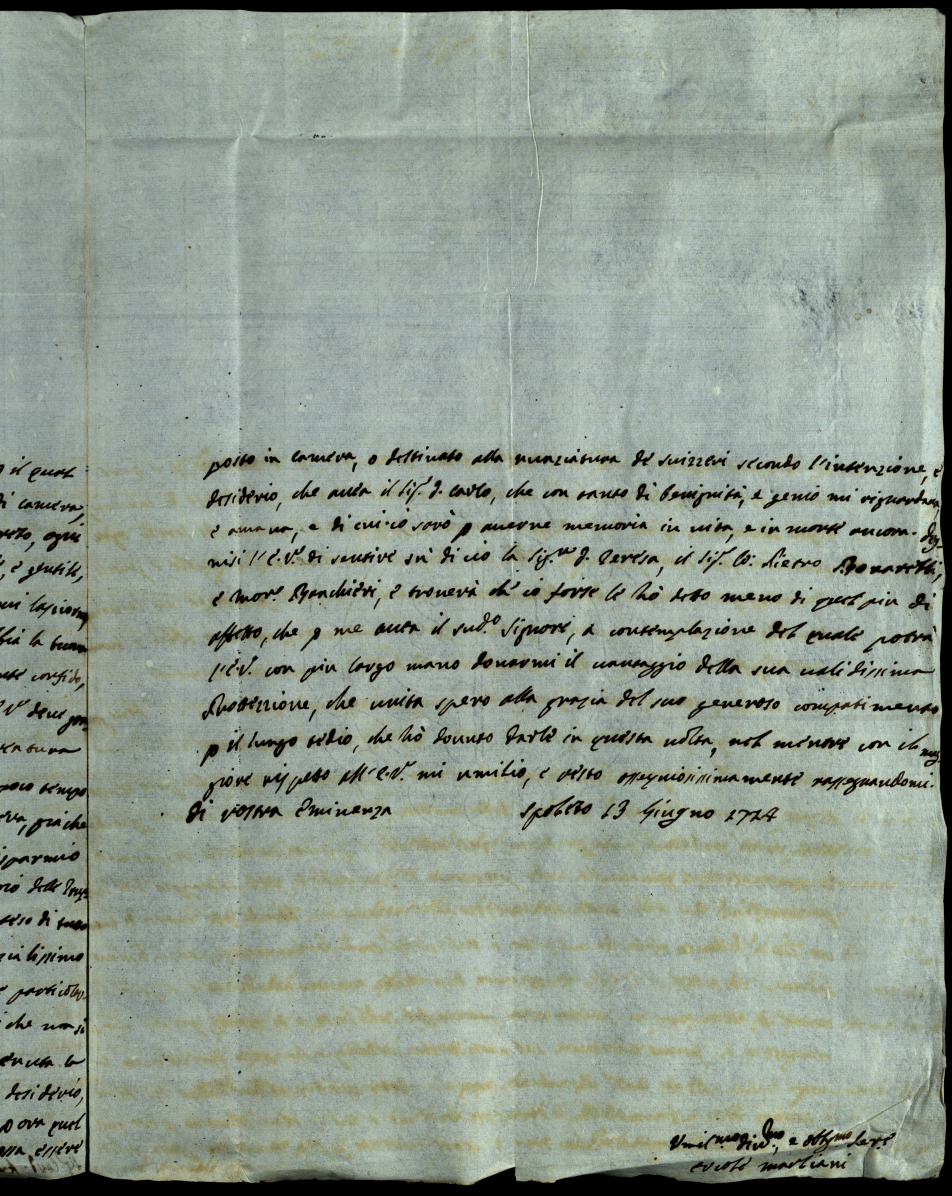 o il quale
di camera,
ogni
è gentile,
confido,
poco tempo
già che
risparmio
delle
di tutto
che non si
la
desiderio,
ora quel
essere
posto in camera, o destinato alla nunziatura de suizzeri secondo l'intenzione, e
desiderio, che auea il Sig.r D. Carlo, che con tanto di benignità, e genio mi riguardaua,
e amaua, e di cui io sarò p auerne memoria in uita, e in morte ancora. Deg-
nisi l'E.V. di sentire sù di ciò la Sig.ra D. Teresa, il Sig.r Co: Pietro Bonarelli,
e Mor.r Banchieri, e trouerà ch'io forse le hò deto meno di quel più di
affetto, che p me auea il sud.o Signore, a contemplazione del quale potrà
l'E.V. con più largo mano donarmi il uantaggio della sua ualidissima
Protezzione, che unita spero alla grazia del suo generoso compatimento
p il lungo tedio, che hò douuto darle in questa uolta, nel mentre con il mag
giore rispetto all'E.V. mi umilio, e resto ossequiosissimamente rassegnandomi.
Di Vostra Eminenza Spoleto 13 Giugno 1724
Umil.mo Diu.mo, e obbl.mo Ser.e
Ercole Marliani